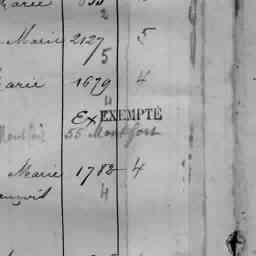 Marie
2
Marie 2127 5
5
Marie 1679 4
4
Ex EXEMPTÉ
55 Montfort
Marie 1782 4
4